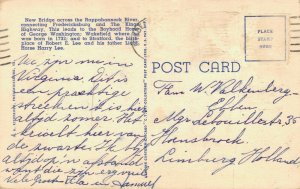 New Bridge across the Rappahannock River,
connecting Fredericksburg and The Kings
Highway. This leads to the Boyhood Home
of George Washington; Wakefield where he
was born in 1732; and to Stratford, the birth-
place of Robert E. Lee and his father Light
Horse Harry Lee.
PLACE
STAMP
HERE
POST CARD
We zyn nu in
Virginia dit is
een prachtige
streek en is hier
altyd zomer. Het
hier van
de zwarte.
altyd op 'n afstand
want die zyn erg vuil
Fam W. Valkenberg-
Mgr. Lebouillestr 35
Hoensbroek.
Limburg Holland